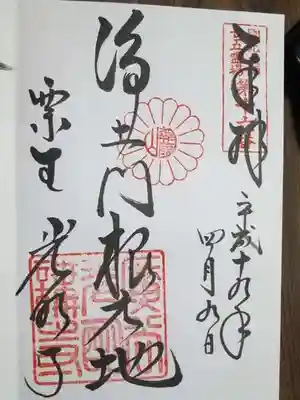 奉拝
平成十九年
四月九日
浄土門根元地
粟生 光明寺